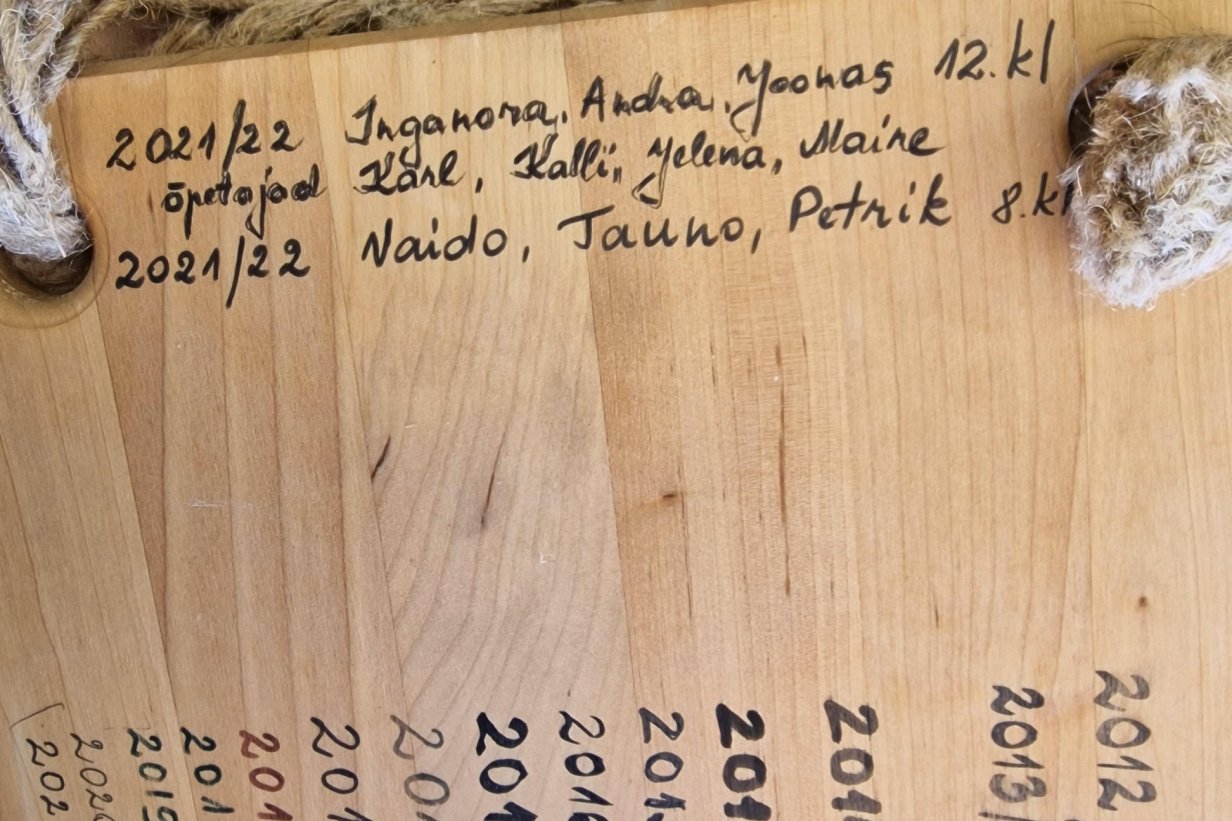 2021/22 Inganora, Andra, Joonas 12.kl
õpetajad Karl, Kalli, Jelena, Maire
2021/22 Naido, Tauno, Petrik 8.kl
202
202
2019
201
201
201
20
201
201
201
201
201
2013/
2012